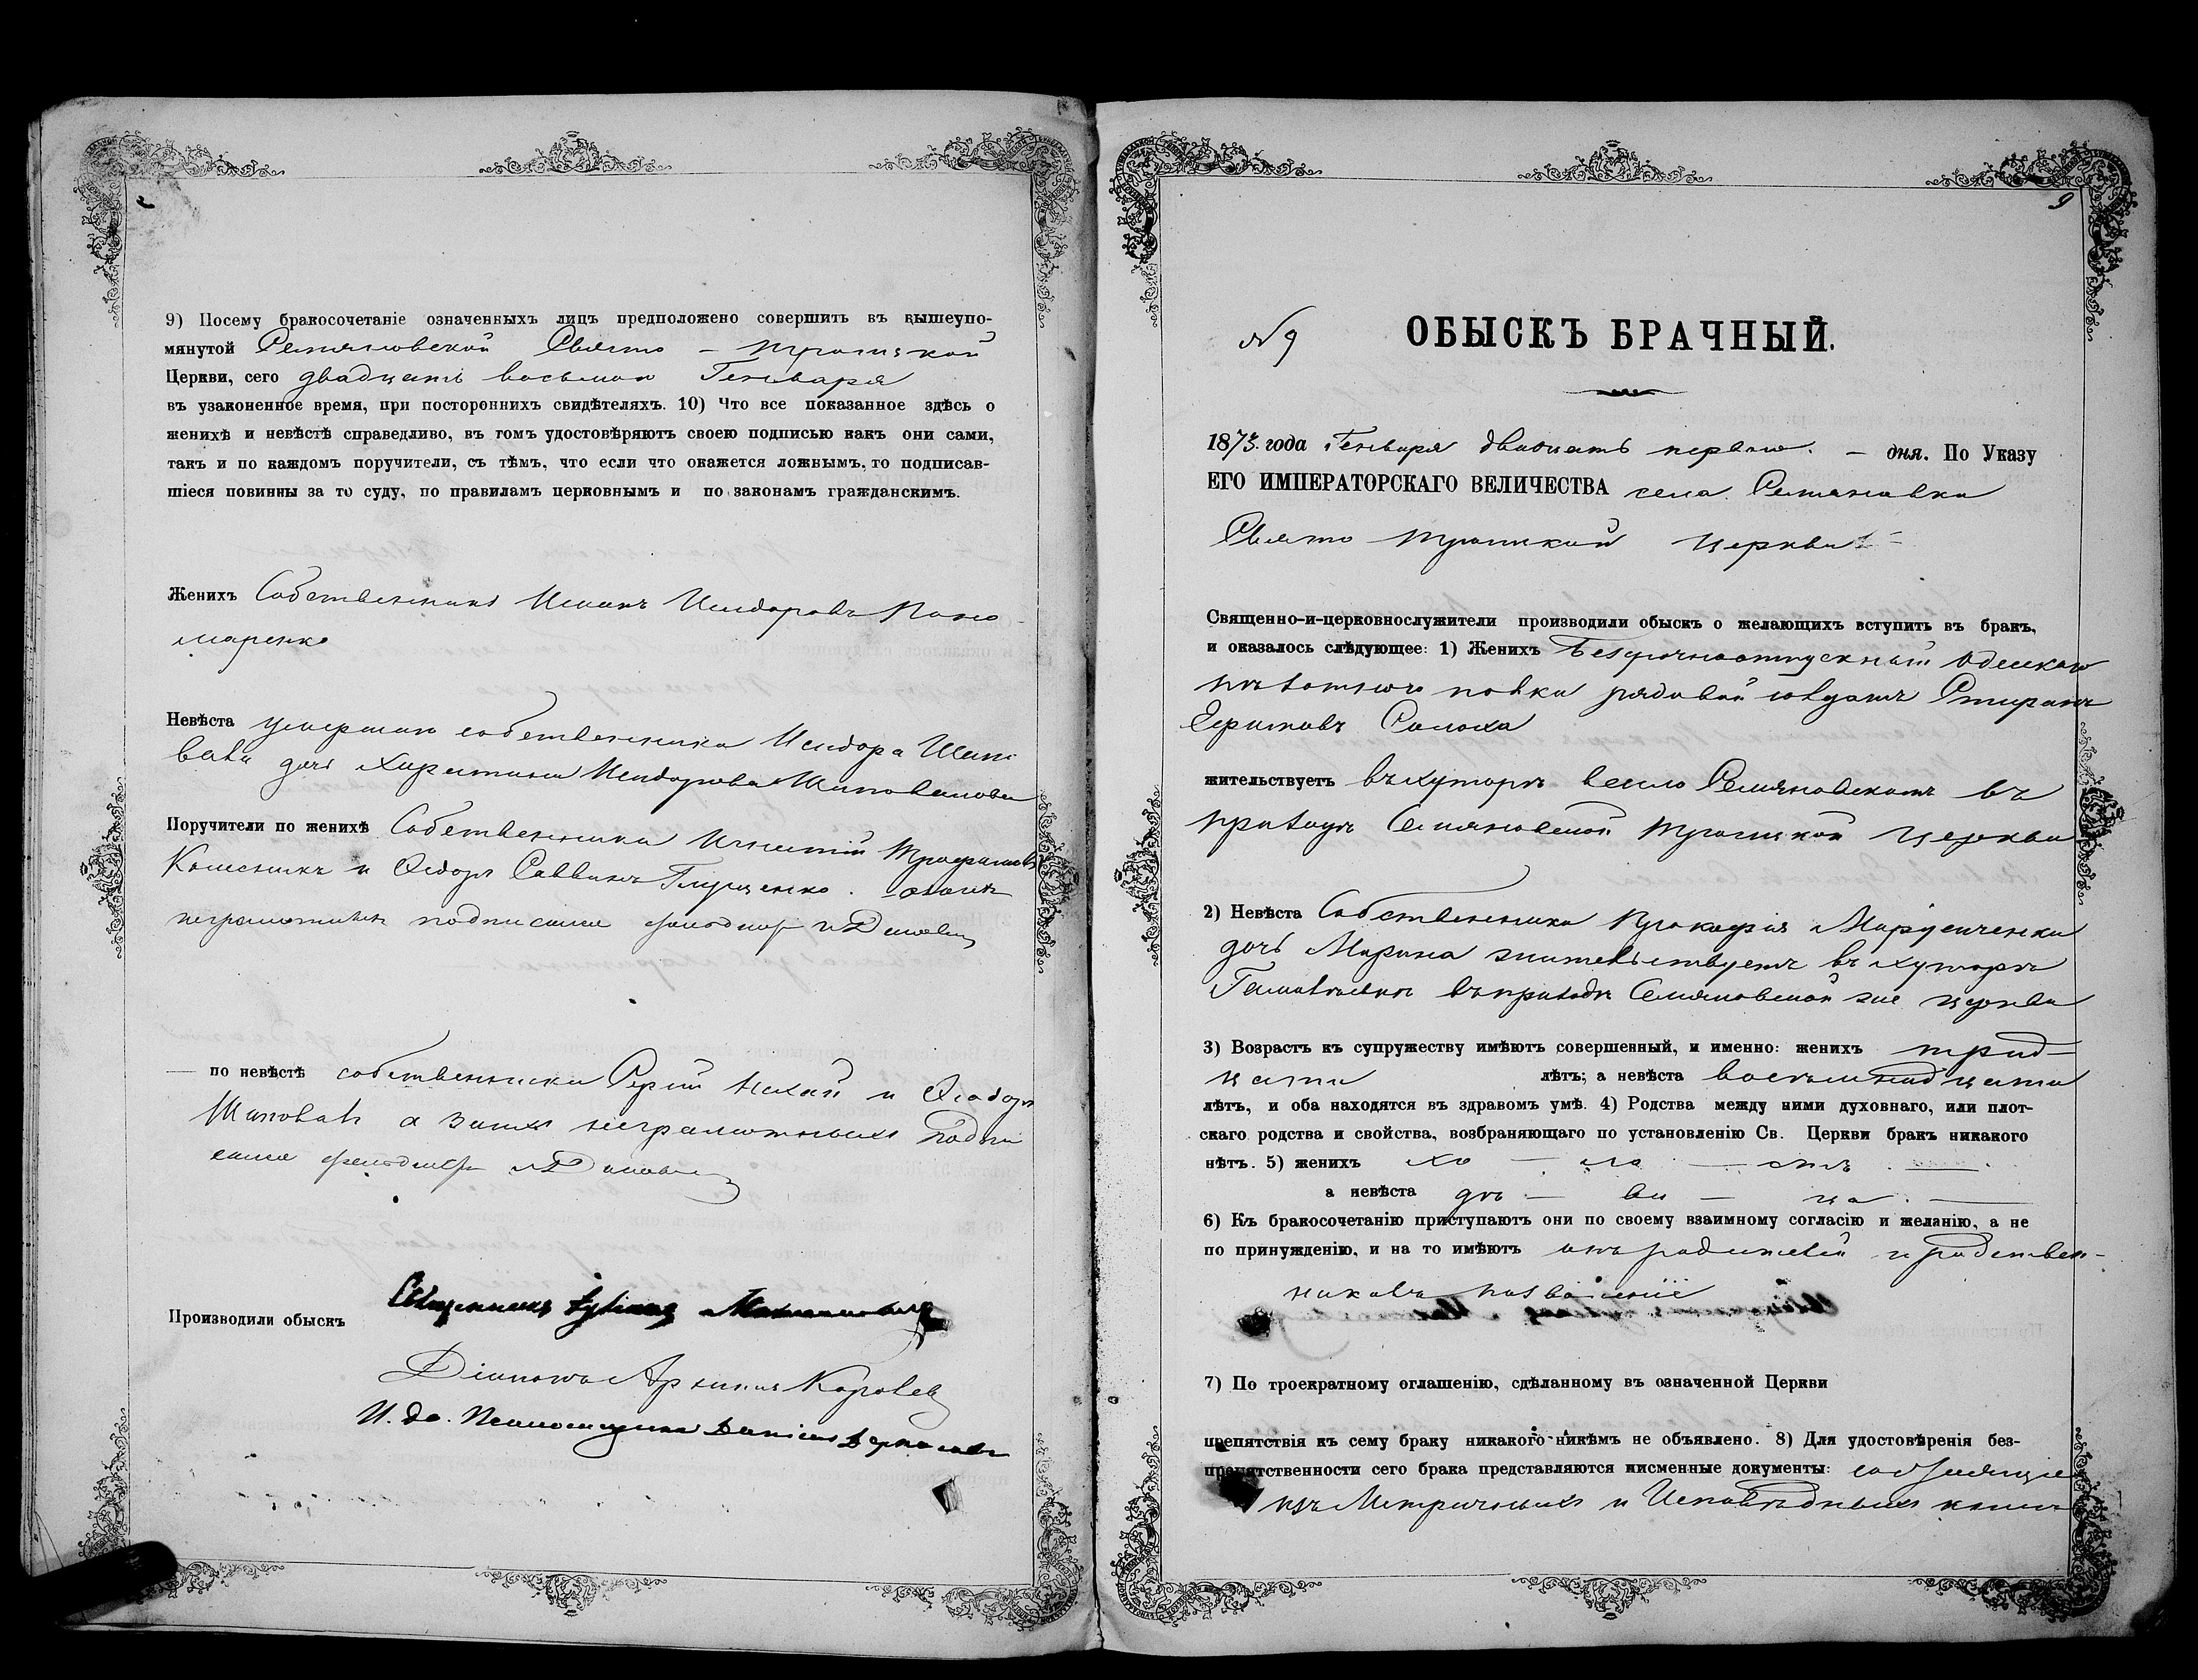 9) Посему бракосочетаніе означенныхъ лицъ предположено совершить въ вышеупо-
мянутой Семяновской Свято - Троицкой
Церкви, сего двадцать восьмаго Генваря
въ узаконенное время, при постороннихъ свидѣтеляхъ. 10) Что все показанное здѣсь о
женихѣ и невѣстѣ справедливо, въ томъ удостовѣряютъ своею подписью какъ они сами,
такъ и по каждомъ поручители, съ тѣмъ, что если что окажется ложнымъ, то подписав-
шіеся повинны за то суду, по правиламъ церковнымъ и по законамъ гражданскимъ.
Женихъ Собственникъ Исидоровъ Поно
маренко
Невѣста умершаго собственника Исидора Шапо
вала дочь Христина Исидорова Шаповалова
Поручители по женихѣ Собственники Трофимовъ
и Ѳедоръ Саввинъ Глущенко.
неграмотныхъ
по невѣстѣ собственники и Ѳеодоръ
Шаповалъ а за нихъ неграмотныхъ подпи
сался
Производили обыскъ Священникъ
Діаконъ
И. до. Псаломщика
9
№ 9
ОБЫСКЪ БРАЧНЫЙ.
1873. года Генваря двадцать перваго. - дня. По Указу
ЕГО ИМПЕРАТОРСКАГО ВЕЛИЧЕСТВА села Семяновки
Свято Троицкой Церкви
Священно-и-церковнослужители производили обыскъ о желающихъ вступить въ бракъ,
и оказалось слѣдующее: 1) Женихъ Безсрочноотпускный Одескаго
пѣхотнаго полка рядовой солдатъ
Солоха
жительствуетъ въ хуторѣ Семяновскомъ въ
приходѣ Семяновской Троицкой церкви
2) Невѣста Собственника Прокофія Марусиченки
дочь Марина жительствуетъ въ хуторѣ
въ приходѣ Семяновской же церкви
3) Возрастъ къ супружеству имѣютъ совершенный, и именно: женихъ трид-
цати лѣтъ; а невѣста восемнадцати
лѣтъ, и оба находятся въ здравомъ умѣ. 4) Родства между ними духовнаго, или плот-
скаго родства и свойства, возбраняющаго по установленію Св. Церкви бракъ никакого
нѣтъ. 5) женихъ хо - ло - стъ.
а невѣста дѣ - ви - ца.
6) Къ бракосочетанію приступаютъ они по своему взаимному согласію и желанію, а не
по принужденію, и на то имѣютъ отъ родителей и родствен-
никовъ позволеніе
7) По троекратному оглашенію, сдѣланному въ означенной Церкви
препятствія къ сему браку никакого никѣмъ не объявлено. 8) Для удостовѣренія без-
препятственности сего брака представляются письменные документы:
изъ Метричныхъ и Исповѣдныхъ книгъ